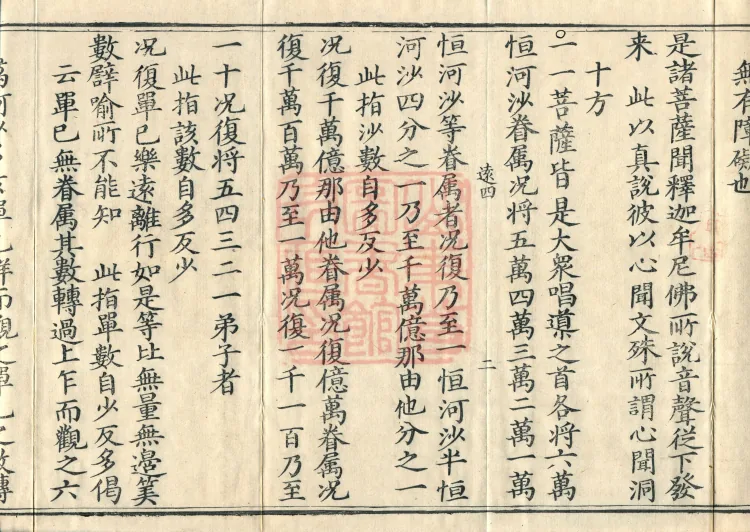 無有障礙也
是諸菩薩聞釋迦牟尼佛所說音聲從下發
來　此以真說彼以心聞文殊所謂心聞洞
十方
一一菩薩皆是大眾唱導之首各將六萬
恒河沙眷属况將五萬四萬三萬二萬一萬
遠四　二
恒河沙等眷属者况復乃至一恒河沙半恒
河沙四分之一乃至千萬億那由他分之一
此指沙數自多反少
况復千萬億那由他眷属况復億萬眷属况
復千萬百萬乃至一萬况復一千一百乃至
一十况復將五四三二一弟子者
此指該數自多反少
况復單巳樂遠離行如是等比無量無邊筭
數譬喻所不能知　此指單數自少反多偈
云單巳無眷属其數轉過上乍而觀之六